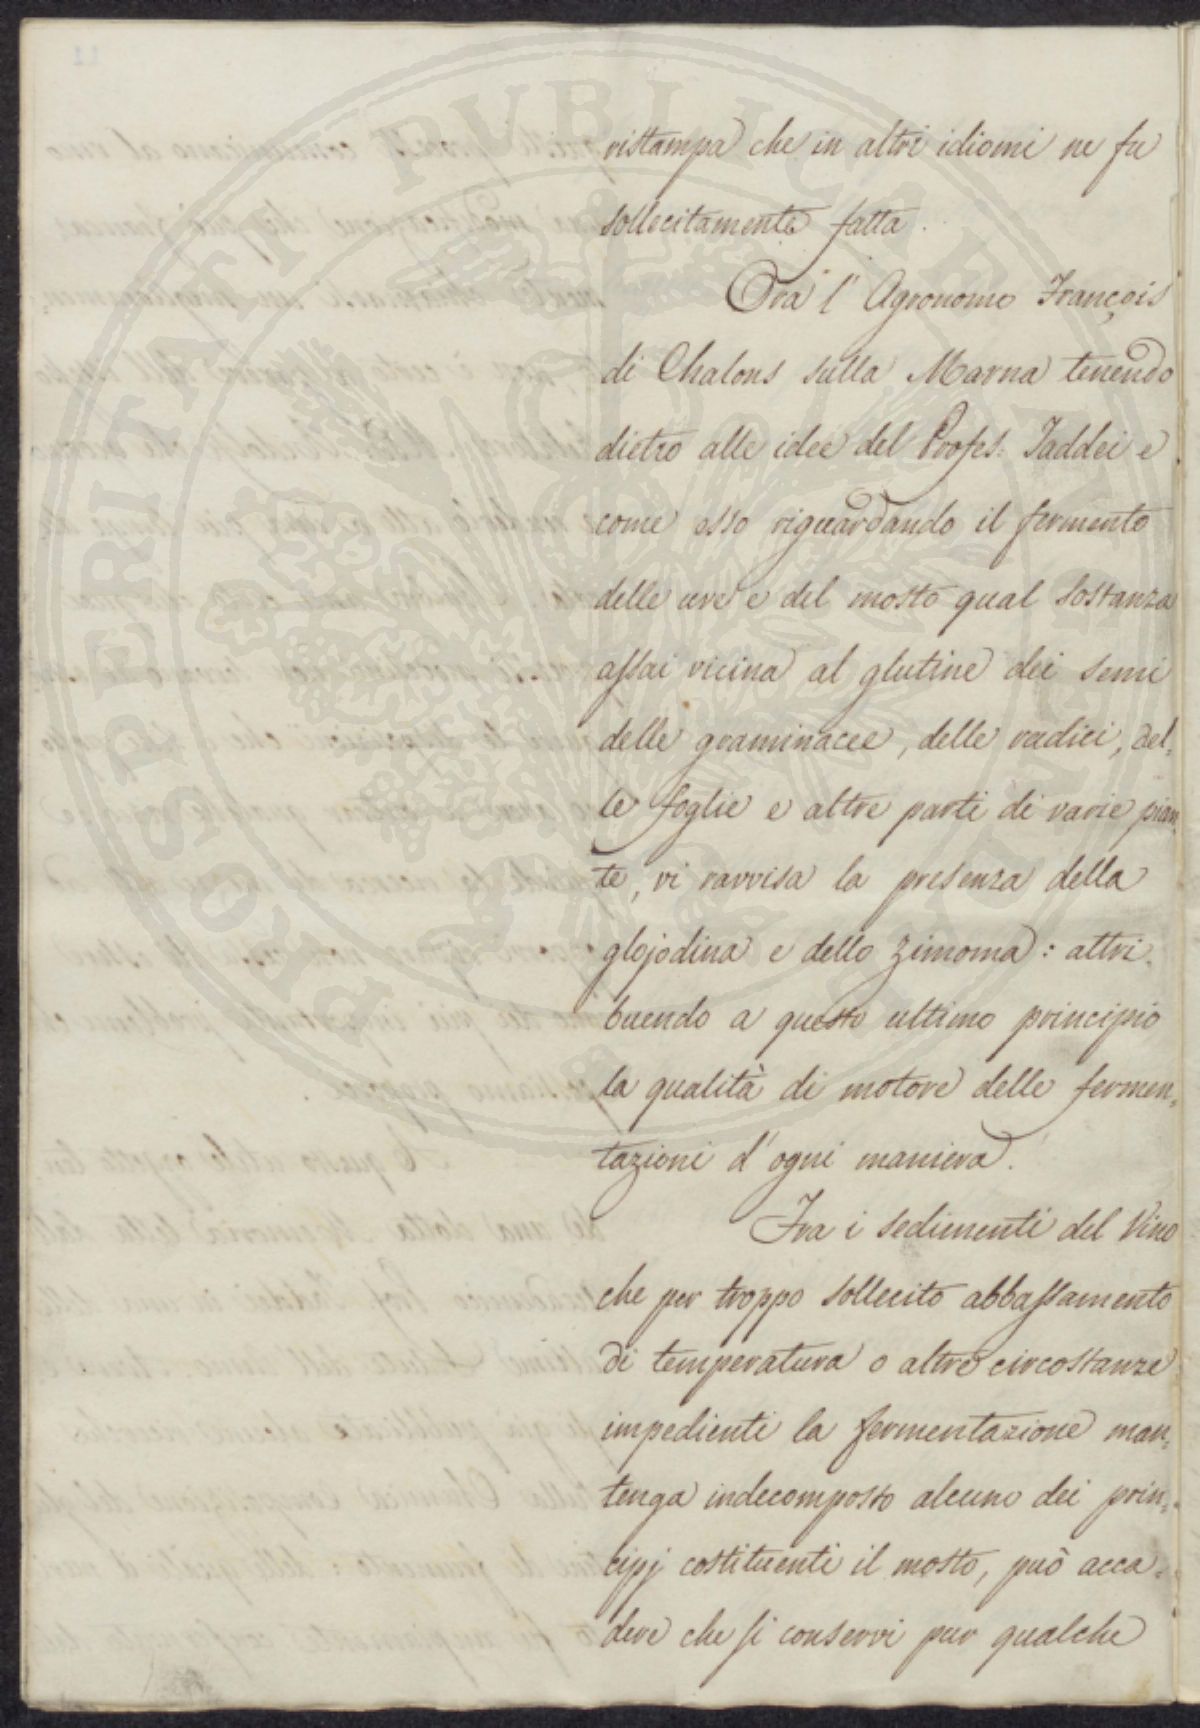 PROSPERITATI PUBLICAE AUGENDAE
ristampa che in altri idiomi ne fu
sollecitamente fatta.
Ora l'Agronomo François
di Chalons sulla Marna tenendo
dietro alle idee del Profes: Taddei e
come esso riguardando il fermento
delle uve e del mosto qual sostanza
assai vicina al glutine dei semi
delle graminacee, delle radici, del,
le foglie e altre parti di varie pian,
te, vi ravvisa la presenza della
glojodina e dello zimoma: attri,
buendo a questo ultimo principio
la qualità di motore delle fermen,
tazioni d'ogni maniera.
Fra i sedimenti del Vino
che per troppo sollecito abbassamento
di temperatura o altre circostanze
impedienti la fermentazione man,
tenga indecomposto alcuno dei prin,
cipj costituenti il mosto, può acca,
dere che si conservi pur qualche